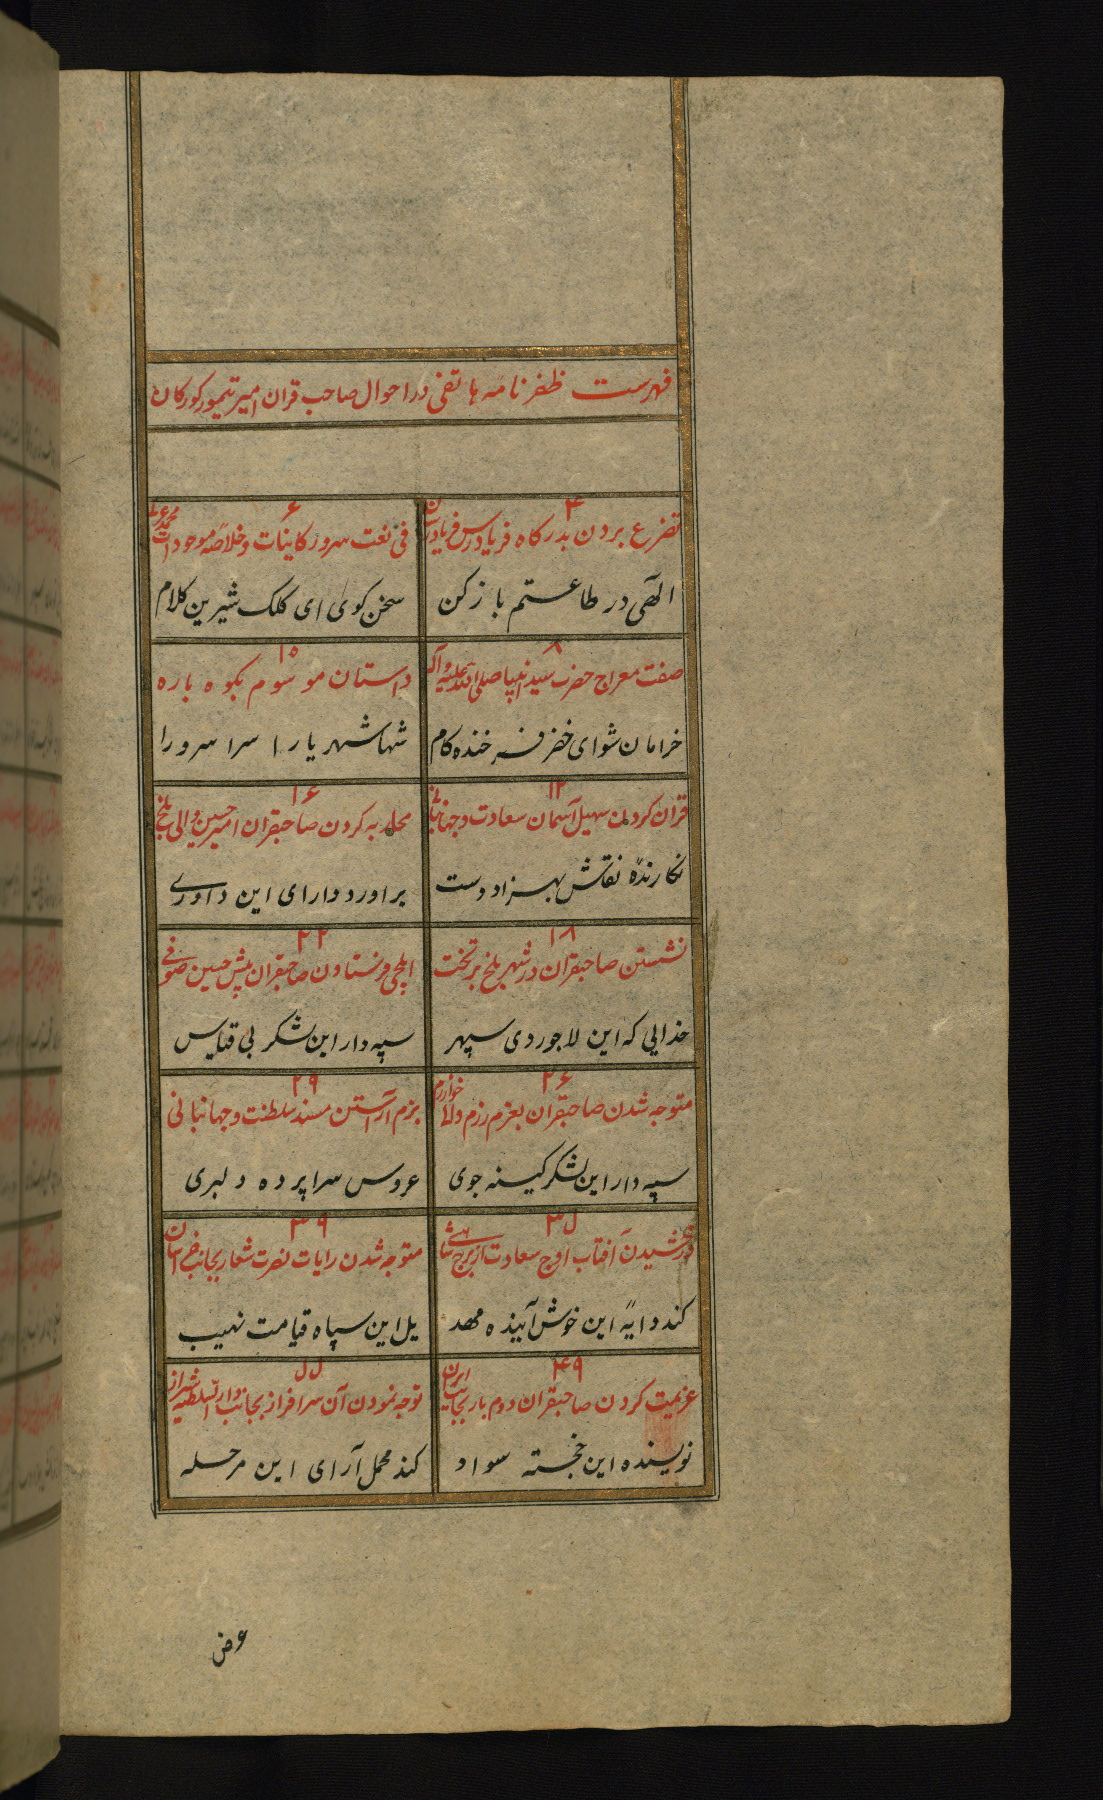 فهرست ظفرنامه هاتفی در احوال صاحب قران امیر تیمور کورکان
۴
تضرع بردن بدرکاه فریادرس فریادرسان
الهی در طاعتم باز کن
۶
فی نعت سرور کاینات و خلاصه موجودات محمد
سخن کوی ای کلک شیرین کلام
۸
صفت معراج حضرت سید انبیا صلی الله علیه و آله
خرامان شو ای خضر فرخنده کام
۱۰
داستان موسوم بکوه باره
شها شهریارا سرا سرورا
۱۲
قران کردن سهیل آسمان سعادت و جهانبانی
نکارندهٔ نقش بهزاد دست
۱۶
محاربه کردن صاحبقران امیر حسین والی بلخ
براورد دارای این داوری
۱۸
نشستن صاحبقران در شهر بلخ بر تخت
خدایی که این لاجوردی سپهر
۲۲
ایلچی فرستادن صاحبقران پیش حسین صوفی
سپه دار این لشکر بی قیاس
۲۶
متوجه شدن صاحبقران بعزم رزم والا خوارزم
سپه دار این لشکر کینه جوی
۲۹
بزم آراستن مسند سلطنت و جهانبانی
عروس سراپرده دلبری
۳۵
درخشیدن آفتاب اوج سعادت از برج
کند دایهٔ این خوش آینده مهد
۳۹
متوجه شدن رایات نصرت شعار بجانب خراسان
یل این سپاه قیامت نهیب
۴۹
عزیمت کردن صاحبقران دوم بار بجانب ایران
نویسنده این خجسته سواد
۵۵
توجه نمودن آن سرافراز بجانب دار السلطنه شیراز
کند محمل آرای این مرحله